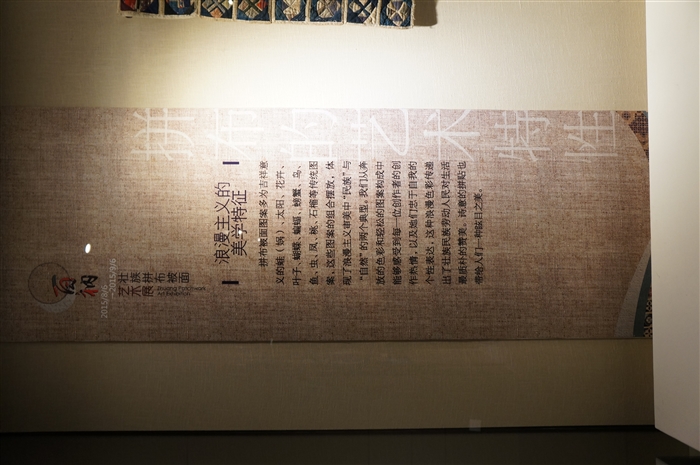 拼布的艺术特性
百衲
2015/8/6
—2015/9/6
壮族拼布被面
艺术展
浪漫主义的
美学特征
拼布被面图案多为吉祥意
义的蛙（锅）、太阳、花卉、
叶子、蝴蝶、蝙蝠、螃蟹、鸟、
鱼、虫、凤、桃、石榴等传统图
案，这些图案的组合摆放，体
现了浪漫主义审美中“民族”与
“自然”的两个典型。我们从奔
放的色彩和轻松的图案构成中
能够感受到每一位创作者的创
作热情，以及她们忠于自我的
个性表达，这种浪漫色彩传递
出了壮族民族劳动人民对生活
最质朴的赞美，诗意的拼贴也
带给人们一种炫目之美。